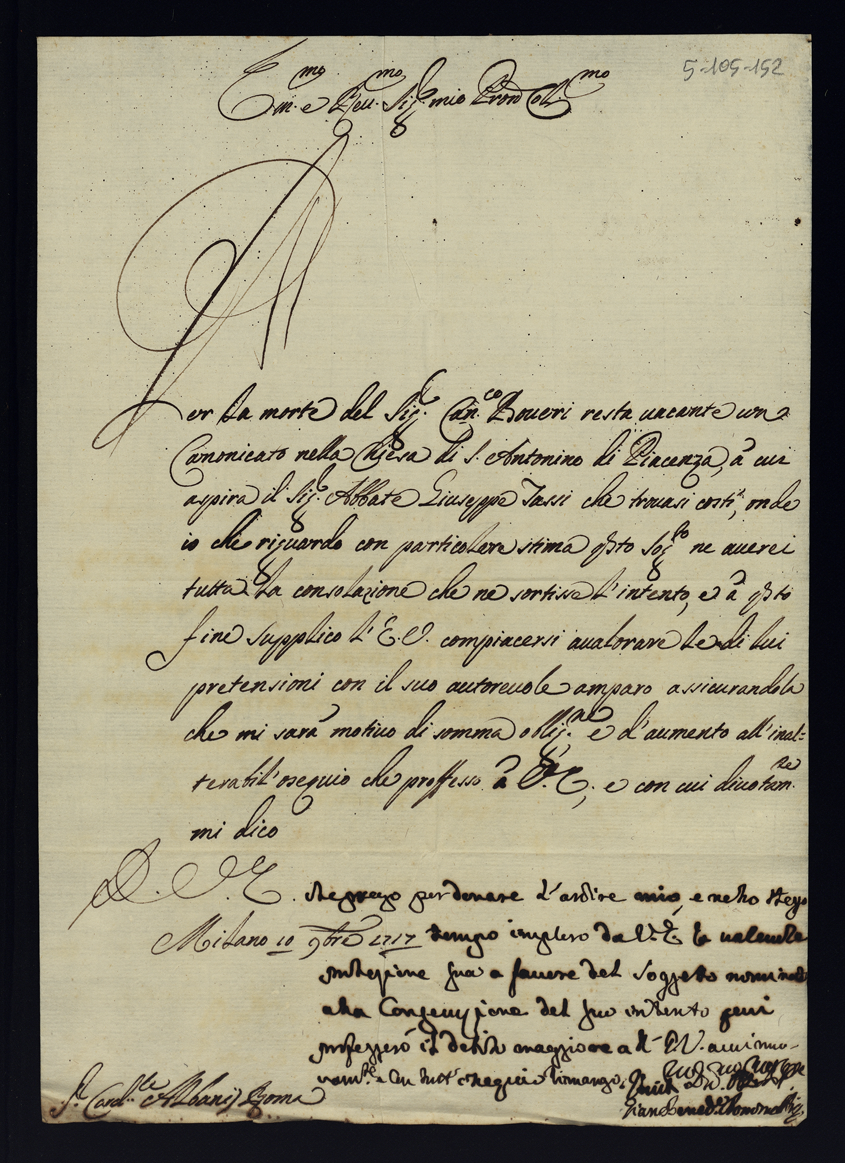 5-105-152
Em.mo e Reu.mo Sig.r mio Pron Col.mo
Per la morte del Sig.r Can.co Roueri resta uacante un
Canonicato nella Chiesa di S. Antonino di Piacenza, à cui
aspira il Sig.r Abbate Giuseppe Tassi che trouasi costì, onde
io che riguardo con particolare stima q̃sto Sog.to ne auerei
tutta la consolazione che ne sortisse l'intento, e à q̃sto
fine supplico l'E.V. compiacersi aualorare le di lui
pretensioni con il suo autoreuole amparo assicurandola
che mi sarà motiuo di somma oblig.ne e d'aumento all'inal=
terabil'osequio che professo à V.E., e con cui diuotam.te
mi dico
D. V. E.
la prego perdonare l'ardire mio, e nello stesso
Milano 10 9bre 1717
tempo imploro da V.E. la ualeuole
protezione sua a fauore del soggetto nominato
alla Consecuzione del suo intento
professerò il debito maggiore a V.E. a cui
con tutt'
S.r Card.le Albani Roma